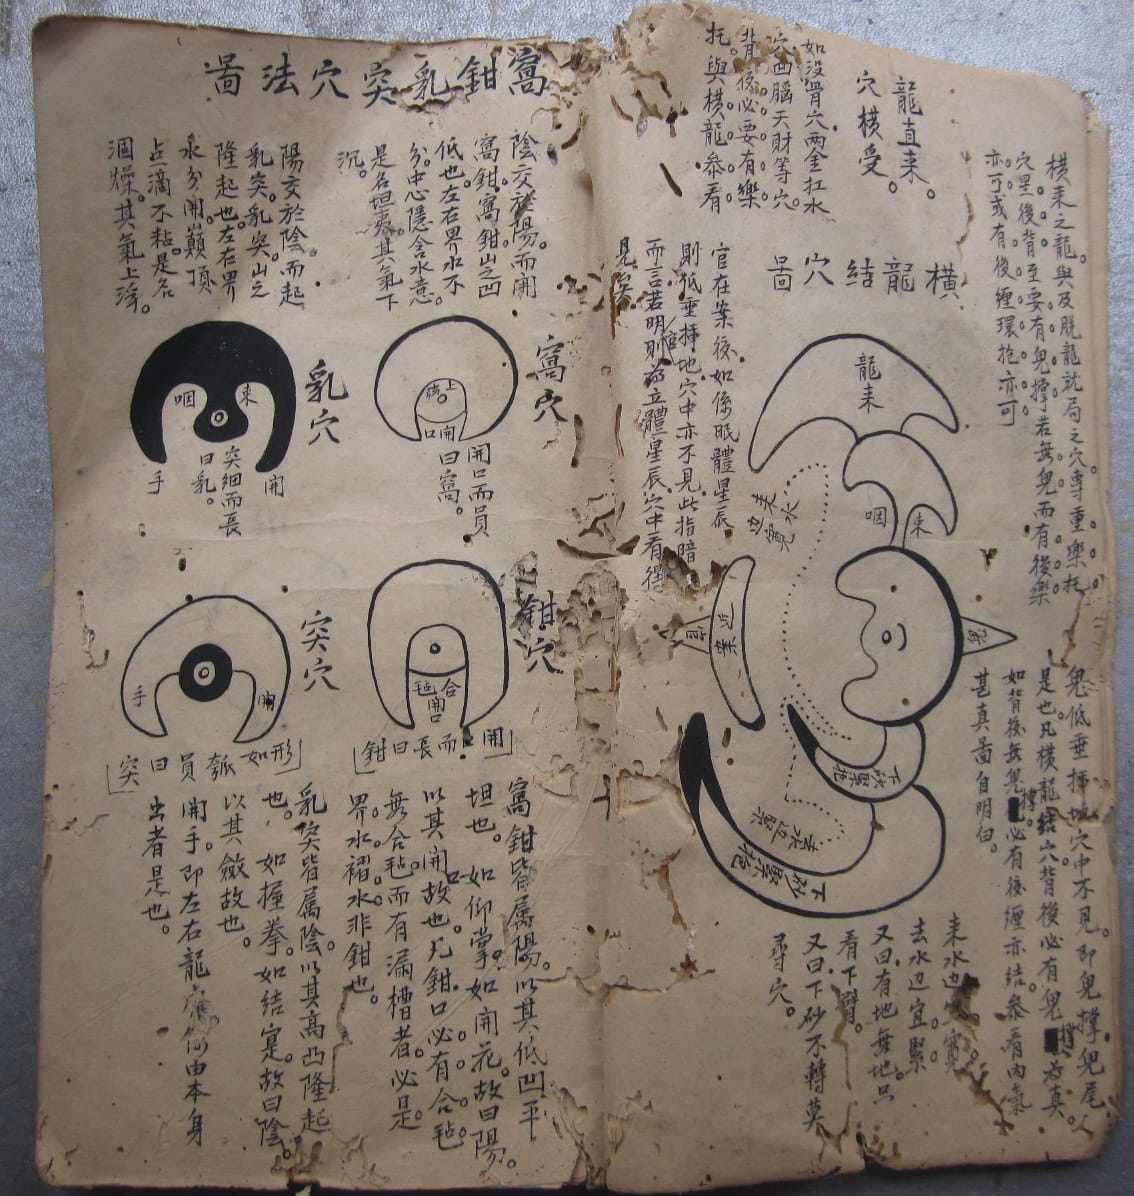 橫來之龍與及脫龍就局之穴專重樂托
穴星後背至要有鬼撐若無鬼而有後樂
亦可或有後纏環抱亦可
龍直來。
穴橫受。
如沒骨穴兩金扛水
穴凹腦天財等穴。
背後必要有樂
托。與橫龍叅看
橫龍結穴圖
官在案後如係眠體星辰
則低垂揷地穴中亦不見此指暗
而言若明則官為立體星辰穴中看得
見矣
龍來
束咽
鬼
來水边寬
近案
官
下砂緊抱
去水边緊
下砂緊抱
鬼低垂揷地穴中不見。即鬼撐鬼尾
是也凡橫龍結穴背後必有鬼撐為真。
如背後無鬼撐必有後纏亦结。叅看內氣
甚真圖自明白。
來水边宜寬。
去水边宜緊。
又曰有地無地只
看下臂。
又曰下砂不轉莫
尋穴。
窩鉗乳突穴法圖
陰交於陽。而開
窩鉗。窩鉗山之凹
低也。左右界水不
分。中心隱含水意。
是名坦夷。其氣下
沉。
陽交於陰。而起
乳突。乳突山之
隆起也。左右界
水分開。巔頂
占滴不粘。是名
涸燥。其氣上浮。
窩穴
開口
開口而員
曰窩。
乳穴
束咽
開手
突細而長
曰乳。
鉗穴
合毡
開口
開口而長曰鉗
突穴
開手
形如瓠員曰突
窩鉗皆属陽。以其低凹平
坦也。如仰掌。如開花。故曰陽。
以其開口故也。凡鉗口必有合毡
無合毡而有漏槽者。必是
界水褶水非鉗也。
乳突皆属陰。以其高凸隆起
也。如握拳。如结寔。故曰陰。
以其斂故也。
開手。即左右龍虎何由本身
出者是也。